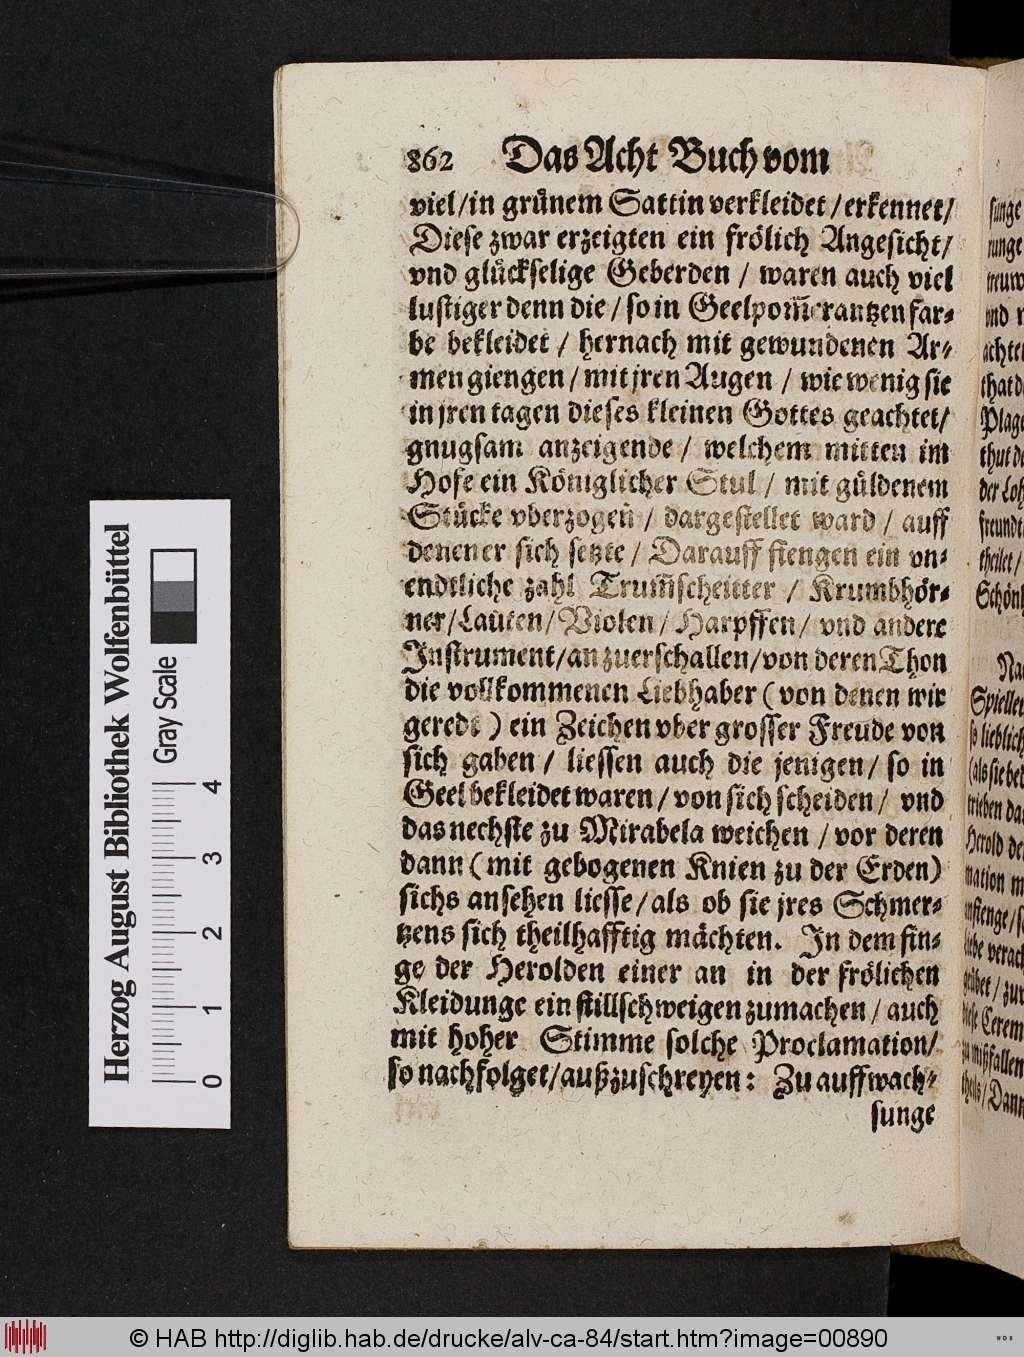 862 Das Acht Buch vom
viel/in grünem Sattin verkleidet/erkennet/
Diese zwar erzeigten ein frölich Angesicht/
vnd glückselige Geberden / waren auch viel
lustiger denn die / so in Geelpom̃erantzen far-
be bekleidet / hernach mit gewundenen Ar-
men giengen / mit jren Augen / wie wenig sie
in jren tagen dieses kleinen Gottes geachtet/
gnugsam anzeigende / welchem mitten im
Hofe ein Königlicher Stul / mit güldenem
Stücke vberzogen / dargestellet ward / auff
denen er sich setzte / Darauff fiengen ein vn-
endtliche zahl Trum̃scheitter / Krumbhör-
ner/Lauten/Violen/Harpffen/ vnd andere
Instrument/an zuerschallen/von deren Thon
die vollkommenen Liebhaber (von denen wir
geredt ) ein Zeichen vber grosser Freude von
sich gaben / liessen auch die jenigen / so in
Geel bekleidet waren / von sich scheiden / vnd
das nechste zu Mirabela weichen / vor deren
dann (mit gebogenen Knien zu der Erden)
sichs ansehen liesse / als ob sie jres Schmer-
tzens sich theilhafftig mächten. In dem fin-
ge der Herolden einer an in der frölichen
Kleidunge ein stillschweigen zumachen / auch
mit hoher Stimme solche Proclamation/
so nachfolget/außzuschreyen: Zu auffwach-
sunge
sunge
runge
achte
that
Plage
thut
der Loh
freundt
theilet /
Schön
Spiellet
so lieblich
(als sie
trieben
Herold
mation
anfienge /
liebe verach
geübet / zur
diese Cerem
zu mißfallen
theils / Dann
Herzog August Bibliothek Wolfenbüttel
Gray Scale
0 1 2 3 4
© HAB http://diglib.hab.de/drucke/alv-ca-84/start.htm?image=00890
WDB